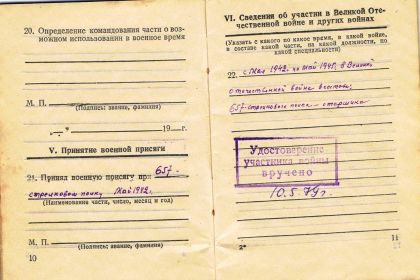 20. Определение командования части о воз-
можном использовании в военное время
М. П.
(Подпись: звание, фамилия)
„ . “ 19 г.
V. Принятие военной присяги
21. Принял военную присягу при 657-
стрелковом полку Май 1942г.
(Наименование части, число, месяц и год)
М. П.
(Подпись: звание, фамилия)
10
VI. Сведения об участии в Великой Оте-
чественной войне и других войнах
(Указать с какого по какое время, в какой войне,
в составе какой части, на какой должности, по
какой специальности)
22. с Мая 1942. по Май 1945. в Великой
отечественной войне
657-стрелковый полк старшина
Удостоверение
участника войны
вручено
10.5.79г.
2*
11